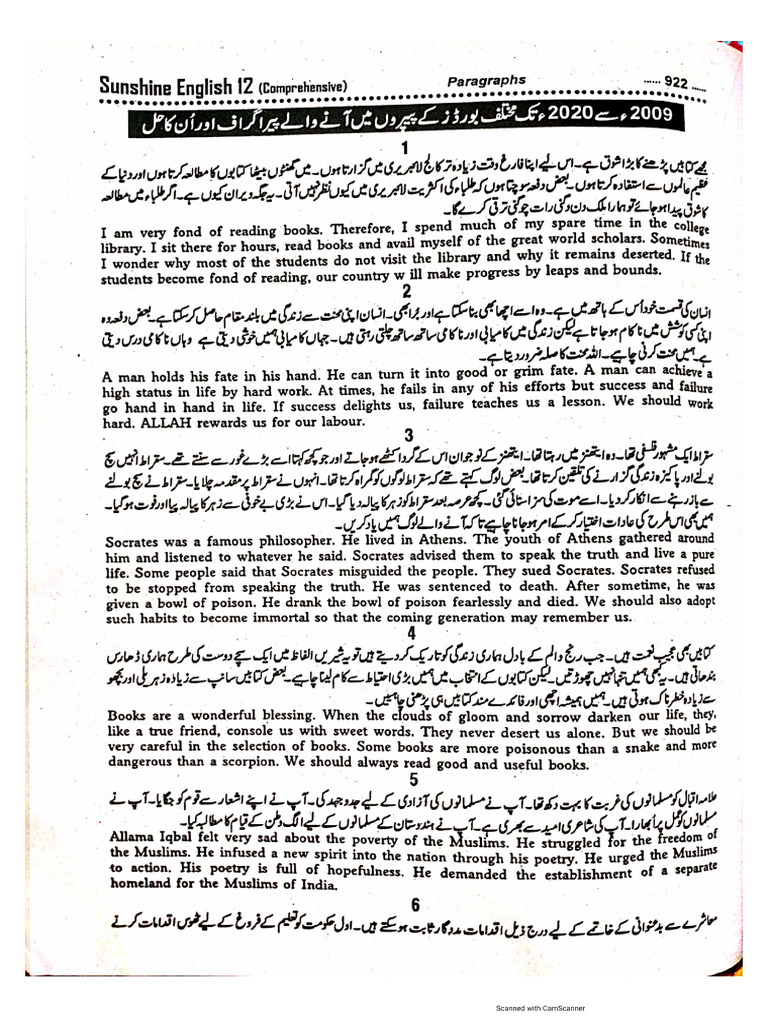 Sunshine English 12 (Comprehensive) Paragraphs ...... 922 ......
2009ء سے 2020ء تک مختلف بورڈز کے پیپروں میں آنے والے پیراگراف اور اُن کا حل
1
مجھے کتابیں پڑھنے کا بڑا شوق ہے۔ اس لیے اپنا فارغ وقت زیادہ تر کالج لائبریری میں گزارتا ہوں۔ میں گھنٹوں بیٹھا کتابوں کا مطالعہ کرتا ہوں اور دنیا کے
عظیم عالموں سے استفادہ کرتا ہوں۔ بعض دفعہ سوچتا ہوں کہ طلباء کی اکثریت لائبریری میں کیوں نظر نہیں آتی۔ یہ جگہ ویران کیوں ہے۔ اگر طلباء میں مطالعہ
کا شوق پیدا ہو جائے تو ہمارا ملک دن دگنی رات چوگنی ترقی کرے گا۔
I am very fond of reading books. Therefore, I spend much of my spare time in the college
library. I sit there for hours, read books and avail myself of the great world scholars. Sometimes
I wonder why most of the students do not visit the library and why it remains deserted. If the
students become fond of reading, our country w ill make progress by leaps and bounds.
2
انسان کی قسمت خود اُس کے ہاتھ میں ہے۔ وہ اسے اچھا بھی بنا سکتا ہے اور بُرا بھی۔ انسان اپنی محنت سے زندگی میں بلند مقام حاصل کر سکتا ہے۔ بعض دفعہ وہ
اپنی کسی کوشش میں ناکام ہو جاتا ہے لیکن زندگی میں کامیابی اور ناکامی ساتھ ساتھ چلتی رہتی ہیں۔ جہاں کامیابی ہمیں خوشی دیتی ہے وہاں ناکامی درس دیتی
ہے۔ ہمیں محنت کرنی چاہیے۔ اللہ محنت کا صلہ ضرور دیتا ہے۔
A man holds his fate in his hand. He can turn it into good or grim fate. A man can achieve a
high status in life by hard work. At times, he fails in any of his efforts but success and failure
go hand in hand in life. If success delights us, failure teaches us a lesson. We should work
hard. ALLAH rewards us for our labour.
3
سقراط ایک مشہور فلسفی تھا۔ وہ ایتھنز میں رہتا تھا۔ ایتھنز کے نوجوان اس کے گرد اکٹھے ہو جاتے اور جو کچھ کہتا اسے بڑے غور سے سنتے تھے۔ سقراط انہیں سچ
بولنے اور پاکیزہ زندگی گزارنے کی تلقین کرتا تھا۔ بعض لوگ کہتے تھے کہ سقراط لوگوں کو گمراہ کرتا تھا۔ انہوں نے سقراط پر مقدمہ چلایا۔ سقراط نے سچ بولنے
سے باز رہنے سے انکار کر دیا۔ اسے موت کی سزا سنائی گئی۔ کچھ عرصہ بعد سقراط کو زہر کا پیالہ دیا گیا۔ اس نے بڑی بے خوفی سے زہر کا پیالہ پیا اور فوت ہو گیا۔
ہمیں بھی اس طرح کی عادات اختیار کر کے امر ہو جانا چاہیے تاکہ آنے والے لوگ ہمیں یاد کریں۔
Socrates was a famous philosopher. He lived in Athens. The youth of Athens gathered around
him and listened to whatever he said. Socrates advised them to speak the truth and live a pure
life. Some people said that Socrates misguided the people. They sued Socrates. Socrates refused
to be stopped from speaking the truth. He was sentenced to death. After sometime, he was
given a bowl of poison. He drank the bowl of poison fearlessly and died. We should also adopt
such habits to become immortal so that the coming generation may remember us.
4
کتابیں بھی عجیب نعمت ہیں۔ جب رنج و الم کے بادل ہماری زندگی کو تاریک کر دیتے ہیں تو یہ شیریں الفاظ میں ایک سچے دوست کی طرح ہماری ڈھارس
بندھاتی ہیں۔ یہ کبھی ہمیں تنہا نہیں چھوڑتیں۔ لیکن کتابوں کے انتخاب میں ہمیں بڑی احتیاط سے کام لینا چاہیے۔ بعض کتابیں سانپ سے زیادہ زہریلی اور بچھو
سے زیادہ خطرناک ہوتی ہیں۔ ہمیں ہمیشہ اچھی اور فائدے مند کتابیں ہی پڑھنی چاہئیں۔
Books are a wonderful blessing. When the clouds of gloom and sorrow darken our life, they,
like a true friend, console us with sweet words. They never desert us alone. But we should be
very careful in the selection of books. Some books are more poisonous than a snake and more
dangerous than a scorpion. We should always read good and useful books.
5
علامہ اقبال کو مسلمانوں کی غربت کا بہت دکھ تھا۔ آپ نے مسلمانوں کی آزادی کے لیے جدوجہد کی۔ آپ نے اپنے اشعار سے قوم کو جگایا۔ آپ نے
مسلمانوں کو عمل پر اُبھارا۔ آپ کی شاعری امید سے بھری ہے۔ آپ نے ہندوستان کے مسلمانوں کے لیے الگ وطن کے قیام کا مطالبہ کیا۔
Allama Iqbal felt very sad about the poverty of the Muslims. He struggled for the freedom of
the Muslims. He infused a new spirit into the nation through his poetry. He urged the Muslims
to action. His poetry is full of hopefulness. He demanded the establishment of a separate
homeland for the Muslims of India.
6
معاشرے سے بدعنوانی کے خاتمے کے لیے درج ذیل اقدامات مددگار ثابت ہو سکتے ہیں۔ اول حکومت کو تعلیم کے فروغ کے لیے ٹھوس اقدامات کرنے
Scanned with CamScanner